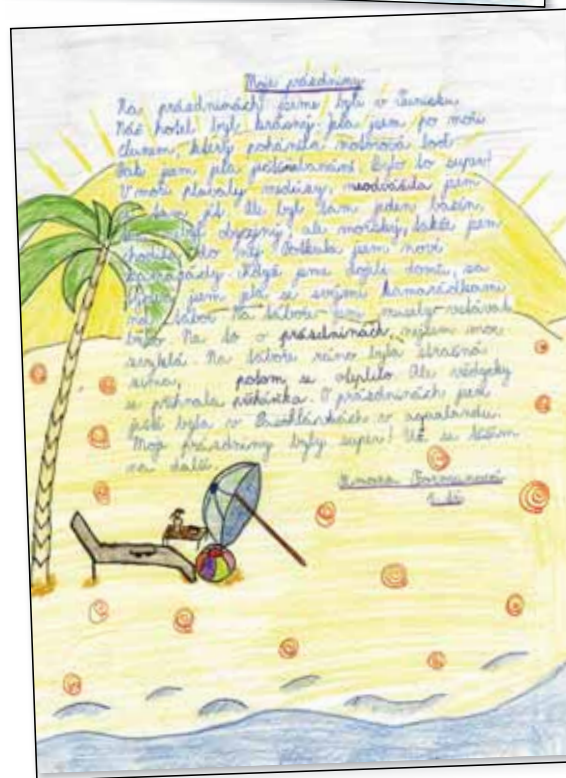 Moje prázdniny
Na prázdninách jsme byli v Tunisku.
Náš hotel byl krásný. Jela jsem po moři
člunem, který poháněla motorová loď.
Pak jsem jela . Bylo to super!
V moři plavaly medúzy, neodvážila jsem
se tam jít. Ale byl tam jeden bazén,
byl obyčejný, ale mořský, takže jsem
chodila do něj. Potkala jsem nové
kamarády. Když jsme dojeli domů, za
jsem jela se svými kamarádkami
na tábor. Na táboře jsme musely vstávat
brzo. Na to o prázdninách nejsem moc
zvyklá. Na táboře ráno byla strašná
zima, potom se oteplilo. Ale vždycky
se přihnala přeháňka. O prázdninách jsem
ještě byla v Pasohlávkách v aqualandu.
Moje prázdniny byly super! Už se těším
na další.